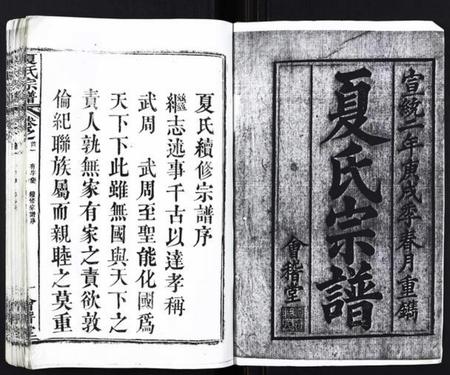 宣統二年庚戌年春月重鐫
夏氏宗譜
會稽堂
夏氏續修宗譜序
繼志述事千古以達孝稱
武周 武周至聖能化國爲
天下下此雖無國與天下之
責人孰無家有家之責欲敦
倫紀聯族屬而親睦之莫重
夏氏宗譜
卷之首
會稽堂